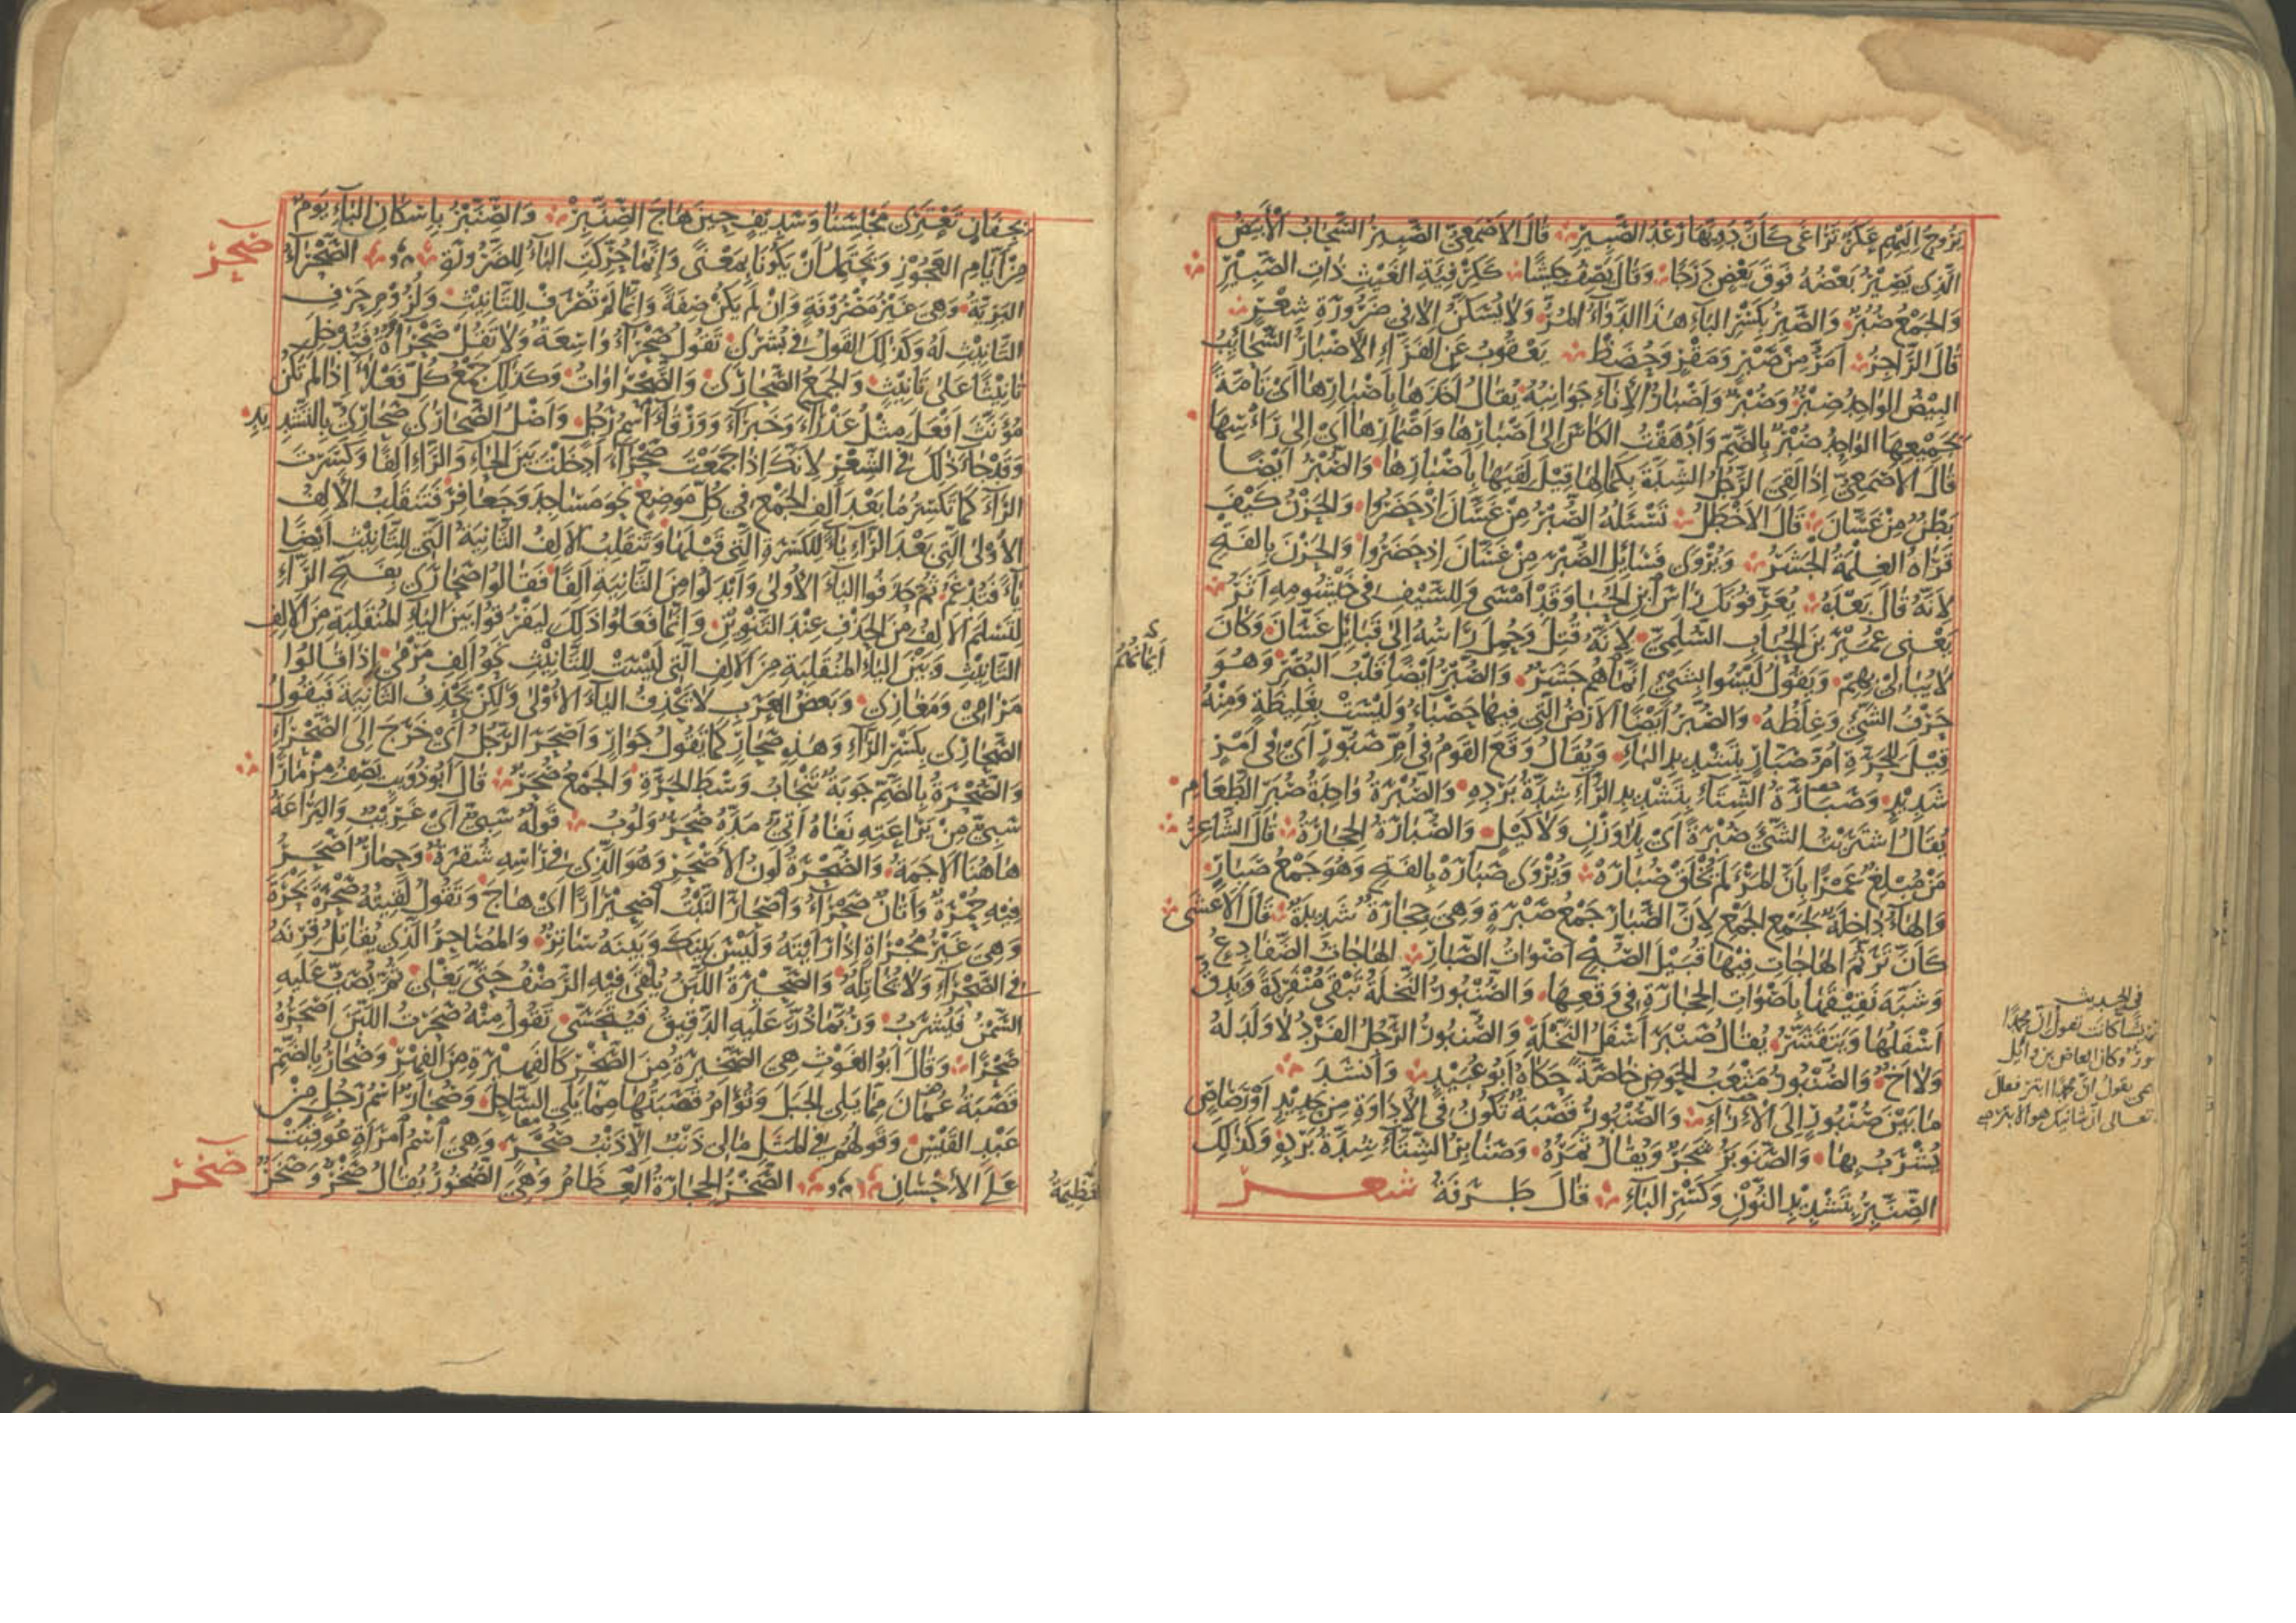 تَرُوحُ إِلَيْهِمْ عَكَرٌ تَرَاغَى كَأَنَّ دَوِيَّهَا رَعْدُ الصَّبِيرِ قَالَ الْأَصْمَعِيُّ الصَّبِيرُ السَّحَابُ الْأَبْيَضُ
الَّذِي يَصِيرُ بَعْضُهُ فَوْقَ بَعْضٍ دَرَجًا وَقَالَ يَصِفُ جَيْشًا كَكِرْفِئَةِ الْغَيْثِ ذَاتِ الصَّبِيرِ
وَالْجَمْعُ صُبُرٌ وَالصَّبِرُ بِكَسْرِ الْبَاءِ هَذَا الدَّوَاءُ الْمُرُّ وَلَا يُسَكَّنُ إِلَّا فِي ضَرُورَةِ شِعْرٍ
قَالَ الرَّاجِزُ أَمَرَّ مِنْ صَبْرٍ وَمَقْرٍ وَحُضَظْ يَعْقُوبُ عَنِ الْفَرَّاءِ الْأَصْبَارُ السَّحَائِبُ
الْبِيضُ الْوَاحِدُ صِبْرٌ وَصُبْرٌ وَأَصْبَارُ الْإِنَاءِ جَوَانِبُهُ يُقَالُ أَخَذَهَا بِأَصْبَارِهَا أَيْ تَامَّةً
بِجَمِيعِهَا الْوَاحِدُ صُبْرٌ بِالضَّمِّ وَأَدْهَقْتُ الْكَأْسَ إِلَى أَصْبَارِهَا وَأَصْمَارِهَا أَيْ إِلَى رَأْسِهَا
قَالَ الْأَصْمَعِيُّ إِذَا لَقِيَ الرَّجُلُ الشِّدَّةَ بِكَمَالِهَا قِيلَ لَقِيَهَا بِأَصْبَارِهَا وَالصُّبْرُ أَيْضًا
بَطْنٌ مِنْ غَسَّانَ قَالَ الْأَخْطَلُ تَسْئَلُهُ الصُّبْرُ مِنْ غَسَّانَ إِذْ حَضَرُوا وَالْحَزْنُ كَيْفَ
قَرَاهُ الْغِلْمَةُ الْجَشَرُ وَيُرْوَى فَسَائِلِ الصُّبْرَ مِنْ غَسَّانَ إِذْ حَضَرُوا وَالْحَزْنَ بِالْفَتْحِ
لِأَنَّهُ قَالَ بَعْدَهُ يُعَرِّفُونَكَ رَأْسَ ابْنِ الْحُبَابِ وَقَدْ أَمْسَى وَلِلسَّيْفِ فِي خَيْشُومِهِ أَثَرُ
يَعْنِي عُمَيْرَ بْنَ الْحُبَابِ السُّلَمِيَّ لِأَنَّهُ قُتِلَ وَحُمِلَ رَأْسُهُ إِلَى قَبَائِلِ غَسَّانَ وَكَانَ
لَا يُبَالِي بِهِمْ وَيَقُولُ لَيْسُوا بِشَيْءٍ إِنَّمَا هُمْ جَشَرٌ وَالصُّبْرُ أَيْضًا قَلْبُ الْبُصْرِ وَهُوَ
حَرْفُ الشَّيْءِ وَغِلَظُهُ وَالصُّبْرُ أَيْضًا الْأَرْضُ الَّتِي فِيهَا حَصْبَاءُ وَلَيْسَتْ بِغَلِيظَةٍ وَمِنْهُ
قِيلَ لِلْحَرَّةِ أُمُّ صَبَّارٍ بِتَشْدِيدِ الْبَاءِ وَيُقَالُ وَقَعَ الْقَوْمُ فِي أُمِّ صَبُّورٍ أَيْ فِي أَمْرٍ
شَدِيدٍ وَصَبَارَّةُ الشِّتَاءِ بِتَشْدِيدِ الرَّاءِ شِدَّةُ بَرْدِهِ وَالصُّبْرَةُ وَاحِدَةُ صُبَرِ الطَّعَامِ
يُقَالُ اشْتَرَيْتُ الشَّيْءَ صُبْرَةً أَيْ بِلَا وَزْنٍ وَلَا كَيْلٍ وَالصُّبَارَةُ الْحِجَارَةُ قَالَ الشَّاعِرُ
مَنْ مُبْلِغٌ عَمْرًا بِأَنَّ الْمَرْءَ لَمْ يُخْلَقْ صُبَارَهْ وَيُرْوَى صَبَارَهْ بِالْفَتْحِ وَهُوَ جَمْعُ صَبَارٍ
وَالْهَاءُ دَاخِلَةٌ لِجَمْعِ الْجَمْعِ لِأَنَّ الصَّبَارَ جَمْعُ صَبْرَةٍ وَهِيَ حِجَارَةٌ شَدِيدَةٌ قَالَ الْأَعْشَى
كَأَنَّ تَرَنُّمَ الْهَاجَاتِ فِيهَا قُبَيْلَ الصُّبْحِ أَصْوَاتُ الصَّبَارِ الْهَاجَاتُ الضَّفَادِعُ
وَشَبَّهَ نَقِيقَهَا بِأَصْوَاتِ الْحِجَارَةِ فِي وَقْعِهَا وَالصُّنْبُورُ النَّخْلَةُ تَبْقَى مُنْفَرِدَةً وَيَدِقُّ
أَسْفَلُهَا وَيَتَقَشَّرُ يُقَالُ صَنْبَرَ أَسْفَلُ النَّخْلَةِ وَالصُّنْبُورُ الرَّجُلُ الْفَرْدُ لَا وَلَدَ لَهُ
وَلَا أَخَ وَالصُّنْبُورُ مَثْعَبُ الْحَوْضِ خَاصَّةً حَكَاهُ أَبُو عُبَيْدٍ وَأَنْشَدَ
مَا بَيْنَ صُنْبُورٍ إِلَى الْإِزَاءِ وَالصُّنْبُورُ قَصَبَةٌ تَكُونُ فِي الْإِدَاوَةِ مِنْ حَدِيدٍ أَوْ رَصَاصٍ
يُشْرَبُ بِهَا وَالصَّنَوْبَرُ شَجَرٌ وَيُقَالُ ثَمَرُهُ وَصَنَابِرُ الشِّتَاءِ شِدَّةُ بَرْدِهِ وَكَذَلِكَ
الصِّنَّبِرُ بِتَشْدِيدِ النُّونِ وَكَسْرِ الْبَاءِ قَالَ طَرَفَةُ شعر
فِي الحديث
كانت تقول ان محمدا
وكان العاص بن وائل
يقول ان محمدا ابتر فقال
تعالى ان شانئك هو الابتر
بِجِفَانٍ تَعْتَرِي مَجْلِسَنَا وَسَدِيفٍ حِينَ هَاجَ الصِّنَّبِرْ وَالصِّنَّبْرُ بِإِسْكَانِ الْبَاءِ يَوْمٌ
مِنْ أَيَّامِ الْعَجُوزِ وَيَحْتَمِلُ أَنْ يَكُونَا بِمَعْنًى وَإِنَّمَا حُرِّكَتِ الْبَاءُ لِلضَّرُورَةِ الصَّحْرَاءُ
صحر
الْبَرِّيَّةُ وَهِيَ غَيْرُ مَصْرُوفَةٍ وَإِنْ لَمْ يَكُنْ صِفَةً وَإِنَّمَا لَمْ تُصْرَفْ لِلتَّأْنِيثِ وَلُزُومِ حَرْفِ
التَّأْنِيثِ لَهُ وَكَذَلِكَ الْقَوْلُ فِي بُشْرَى تَقُولُ صَحْرَاءُ وَاسِعَةٌ وَلَا تَقُلْ صَحْرَاءَةٌ فَتُدْخِلَ
تَأْنِيثًا عَلَى تَأْنِيثٍ وَالْجَمْعُ الصَّحَارَى وَالصَّحْرَاوَاتُ وَكَذَلِكَ جَمْعُ كُلِّ فَعْلَاءَ إِذَا لَمْ تَكُنْ
مُؤَنَّثَ أَفْعَلَ مِثْلُ عَذْرَاءَ وَخَبْرَاءَ وَوَرْقَاءَ اسْمِ رَجُلٍ وَأَصْلُ الصَّحَارَى صَحَارِيُّ بِالتَّشْدِيدِ
وَقَدْ جَاءَ ذَلِكَ فِي الشِّعْرِ لِأَنَّكَ إِذَا جَمَعْتَ صَحْرَاءَ أَدْخَلْتَ بَيْنَ الْحَاءِ وَالرَّاءِ أَلِفًا وَكَسَرْتَ
الرَّاءَ كَمَا تَكْسِرُ مَا بَعْدَ أَلِفِ الْجَمْعِ فِي كُلِّ مَوْضِعٍ نَحْوَ مَسَاجِدَ وَجَعَافِرَ فَتَنْقَلِبُ الْأَلِفُ
الْأُولَى الَّتِي بَعْدَ الرَّاءِ يَاءً لِلْكَسْرَةِ الَّتِي قَبْلَهَا وَتَنْقَلِبُ الْأَلِفُ الثَّانِيَةُ الَّتِي لِلتَّأْنِيثِ أَيْضًا
يَاءً فَتُدْغَمُ ثُمَّ حَذَفُوا الْيَاءَ الْأُولَى وَأَبْدَلُوا مِنَ الثَّانِيَةِ أَلِفًا فَقَالُوا صَحَارَى بِفَتْحِ الرَّاءِ
لِتَسْلَمَ الْأَلِفُ مِنَ الْحَذْفِ عِنْدَ التَّنْوِينِ وَإِنَّمَا فَعَلُوا ذَلِكَ لِيَفْرُقُوا بَيْنَ الْيَاءِ الْمُنْقَلِبَةِ مِنَ الْأَلِفِ
التَّأْنِيثِ وَبَيْنَ الْيَاءِ الْمُنْقَلِبَةِ مِنَ الْأَلِفِ الَّتِي لَيْسَتْ لِلتَّأْنِيثِ نَحْوَ أَلِفِ مَرْمًى إِذَا قَالُوا
مَرَامِيَ وَمَغَازِيَ وَبَعْضُ الْعَرَبِ لَا يَحْذِفُ الْيَاءَ الْأُولَى وَلَكِنْ يَحْذِفُ الثَّانِيَةَ فَيَقُولُ
الصَّحَارِي بِكَسْرِ الرَّاءِ وَهَذِهِ صَحَارٍ كَمَا تَقُولُ جَوَارٍ وَأَصْحَرَ الرَّجُلُ أَيْ خَرَجَ إِلَى الصَّحْرَاءِ
وَالصُّحْرَةُ بِالضَّمِّ جَوْبَةٌ تَنْجَابُ وَسْطَ الْحَرَّةِ وَالْجَمْعُ صُحَرٌ قَالَ أَبُو ذُؤَيْبٍ يَصِفُ مِزْمَارًا
سَبِيٌّ مِنْ يَرَاعَتِهِ نَفَاهُ أَتِيٌّ مَدَّهُ صُحَرٌ وَلُوبُ قَوْلُهُ سَبِيٌّ أَيْ غَرِيبٌ وَالْيَرَاعَةُ
هَاهُنَا الْأَجَمَةُ وَالصُّحْرَةُ لَوْنُ الْأَصْحَرِ وَهُوَ الَّذِي فِي رَأْسِهِ شُقْرَةٌ وَحِمَارٌ أَصْحَرُ
فِيهِ حُمْرَةٌ وَأَتَانٌ صَحْرَاءُ وَاصْحَارَّ النَّبْتُ اصْحِيرَارًا أَيْ هَاجَ وَتَقُولُ لَقِيتُهُ صَحْرَةَ بَحْرَةَ
وَهِيَ غَيْرُ مُجْرَاةٍ إِذَا رَأَيْتَهُ وَلَيْسَ بَيْنَكَ وَبَيْنَهُ سَاتِرٌ وَالْمُصَاحِرُ الَّذِي يُقَاتِلُ قِرْنَهُ
فِي الصَّحْرَاءِ وَلَا يُخَاتِلُهُ وَالصَّحِيرَةُ اللَّبَنُ يُلْقَى فِيهِ الرَّضْفُ حَتَّى يَغْلِيَ ثُمَّ يُصَبُّ عَلَيْهِ
السَّمْنُ فَيُشْرَبُ وَرُبَّمَا ذُرَّ عَلَيْهِ الدَّقِيقُ فَيُتَحَسَّى تَقُولُ مِنْهُ صَحَرْتُ اللَّبَنَ أَصْحَرُهُ
صَحْرًا وَقَالَ أَبُو الْغَوْثِ هِيَ الصَّحِيرَةُ مِنَ الصَّحْرِ كَالْفَهِيرَةِ مِنَ الْفِهْرِ وَصُحَارُ بِالضَّمِّ
قَصَبَةُ عُمَانَ مِمَّا يَلِي الْجَبَلَ وَتُؤَامُ قَصَبَتُهَا مِمَّا يَلِي السَّاحِلَ وَصُحَارٌ اسْمُ رَجُلٍ مِنْ
عَبْدِ الْقَيْسِ وَقَوْلُهُمْ فِي الْمَثَلِ مَا لِي ذَنْبٌ إِلَّا ذَنْبُ صُحْرَ وَهِيَ اسْمُ امْرَأَةٍ عُوقِبَتْ
عَلَى الْإِحْسَانِ الصَّخْرُ الْحِجَارَةُ الْعِظَامُ وَهِيَ الصُّخُورُ يُقَالُ صَخْرٌ وَصَخَرٌ
صخر